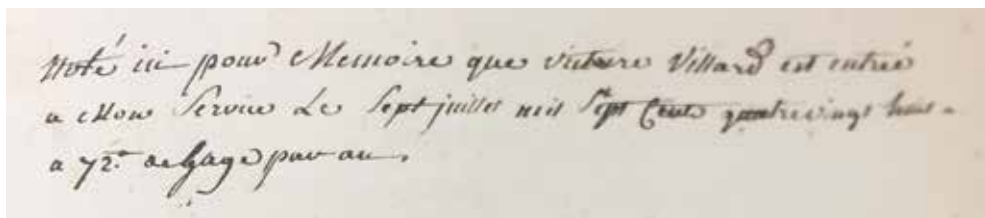 Noté ici pour Memoire que victoire Villard est entrée
a Mon Service Le Sept juillet mil Sept Cent quatrevingt huit
a 72.# de Gage par an.